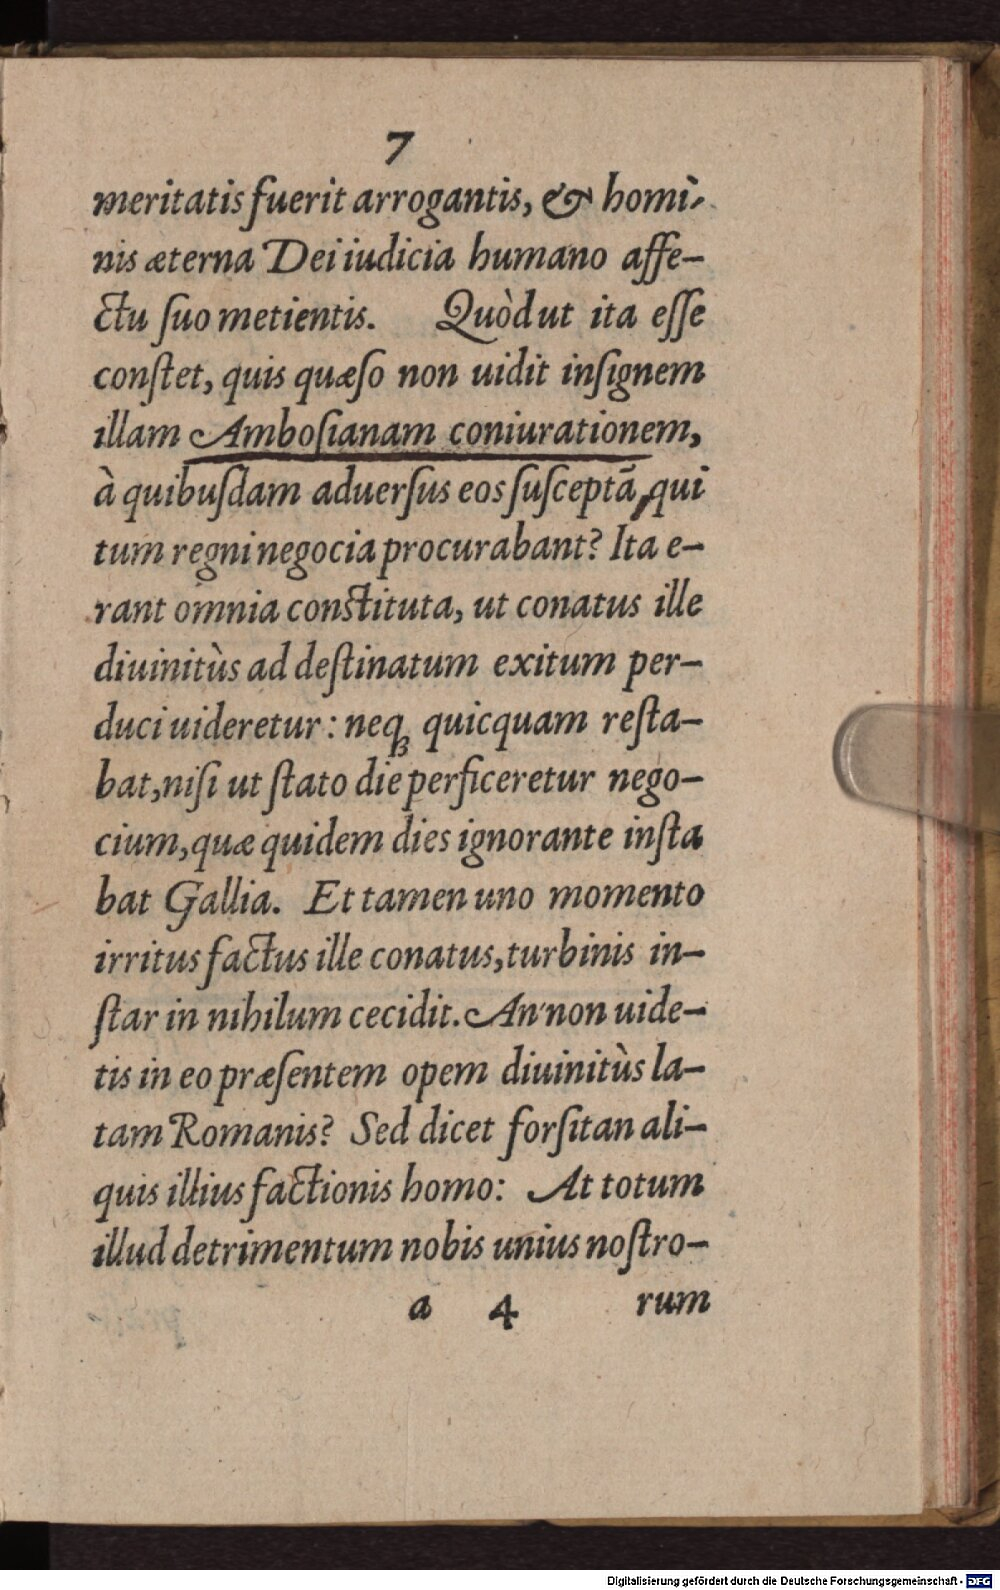 7
meritatis fuerit arrogantis, & homi-
nis æterna Dei iudicia humano affe-
ctu ſuo metientis. Quòd ut ita eſſe
conſtet, quis quæſo non uidit inſignem
illam Amboſianam coniurationem,
à quibuſdam aduerſus eos ſuſceptã, qui
tum regni negocia procurabant? Ita e-
rant omnia conſtituta, ut conatus ille
diuinitùs ad deſtinatum exitum per-
duci uideretur: neqꝫ quicquam reſta-
bat, niſi ut ſtato die perficeretur nego-
cium, quæ quidem dies ignorante inſta
bat Gallia. Et tamen uno momento
irritus factus ille conatus, turbinis in-
ſtar in nihilum cecidit. An non uide-
tis in eo præſentem opem diuinitùs la-
tam Romanis? Sed dicet forſitan ali-
quis illius factionis homo: At totum
illud detrimentum nobis unius noſtro-
a 4 rum
Digitalisierung gefördert durch die Deutsche Forschungsgemeinschaft - DFG